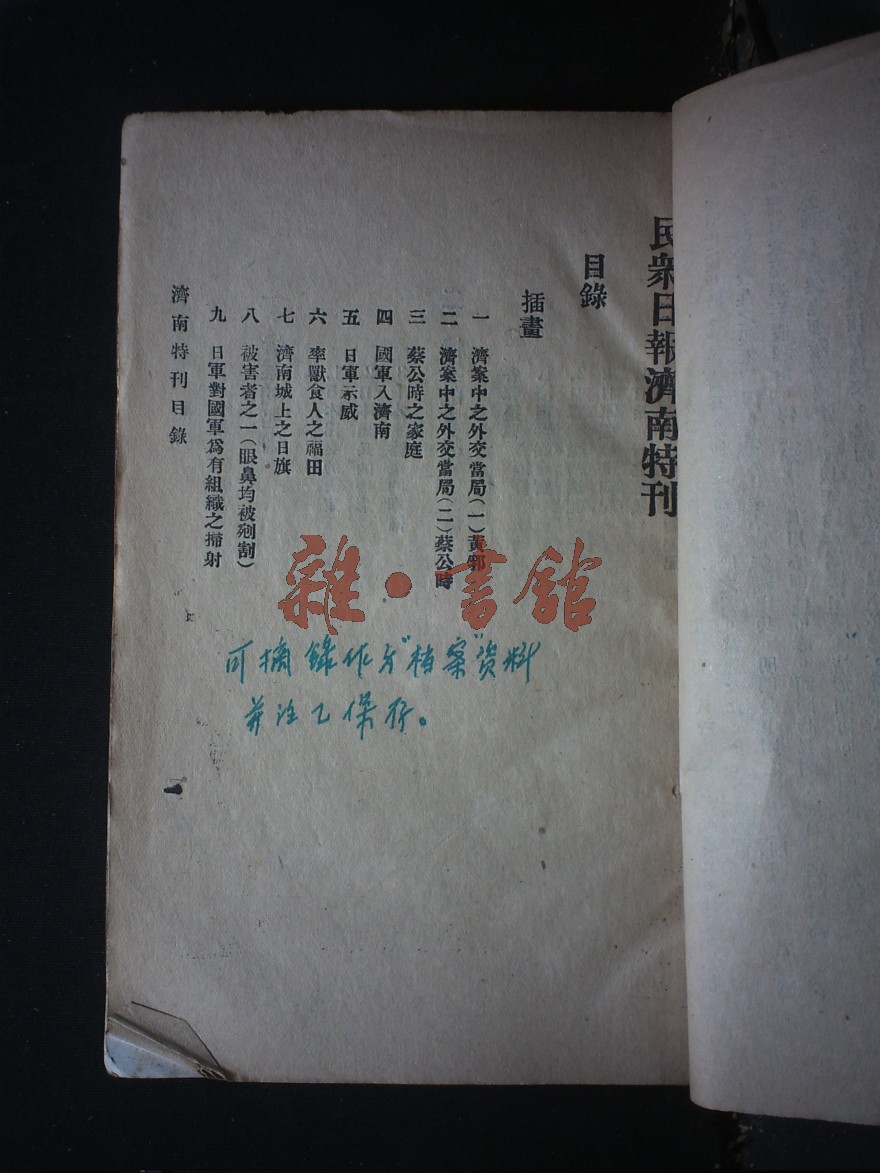 民衆日報濟南特刊
目錄
插畫
一 濟案中之外交當局(一)黃郛
二 濟案中之外交當局(二)蔡公時
三 蔡公時之家庭
四 國軍入濟南
五 日軍示威
六 率獸食人之福田
七 濟南城上之日旗
八 被害者之一(眼鼻均被剜割)
九 日軍對國軍爲有組織之掃射
濟南特刊目錄
一
可摘錄作为"档案"资料
并注乙保存。
雜·書館